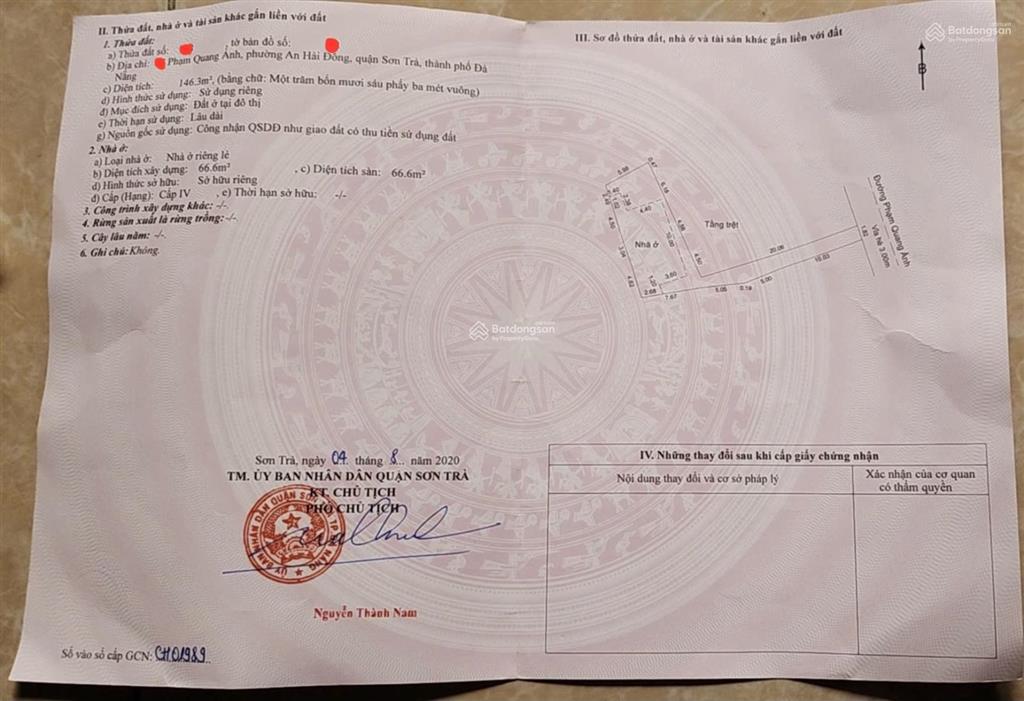 II. Thửa đất, nhà ở và tài sản khác gắn liền với đất
1. Thửa đất:
a) Thửa đất số: , tờ bản đồ số:
b) Địa chỉ: Phạm Quang Ảnh, phường An Hải Đông, quận Sơn Trà, thành phố Đà
Nẵng
c) Diện tích: 146.3m², (bằng chữ: Một trăm bốn mươi sáu phẩy ba mét vuông)
d) Hình thức sử dụng: Sử dụng riêng
đ) Mục đích sử dụng: Đất ở tại đô thị
e) Thời hạn sử dụng: Lâu dài
g) Nguồn gốc sử dụng: Công nhận QSDĐ như giao đất có thu tiền sử dụng đất
2. Nhà ở:
a) Loại nhà ở: Nhà ở riêng lẻ
b) Diện tích xây dựng: 66.6m² , c) Diện tích sàn: 66.6m²
d) Hình thức sở hữu: Sở hữu riêng
đ) Cấp (Hạng): Cấp IV , e) Thời hạn sở hữu: -/-
3. Công trình xây dựng khác: -/-
4. Rừng sản xuất là rừng trồng: -/-
5. Cây lâu năm: -/-
6. Ghi chú: Không.
III. Sơ đồ thửa đất, nhà ở và tài sản khác gắn liền với đất
Batdongsan
by PropertyGuru
B
5.98
0.47
6.16
4.40
4.50
4.88
10.00
Tầng trệt
Nhà ở
3.04
4.50
4.62
1.20
3.60
2.68
7.67
5.05
0.19
5.00
20.06
15.03
1.82
Đường Phạm Quang Ảnh
Vỉa hè 3.00m
Batdongsan
by PropertyGuru
Sơn Trà, ngày 04 tháng 8 năm 2020
TM. ỦY BAN NHÂN DÂN QUẬN SƠN TRÀ
KT. CHỦ TỊCH
PHÓ CHỦ TỊCH
ỦY BAN NHÂN DÂN QUẬN SƠN TRÀ TP ĐÀ NẴNG
Nguyễn Thành Nam
Số vào sổ cấp GCN: CH01989
IV. Những thay đổi sau khi cấp giấy chứng nhận
Nội dung thay đổi và cơ sở pháp lý
Xác nhận của cơ quan
có thẩm quyền